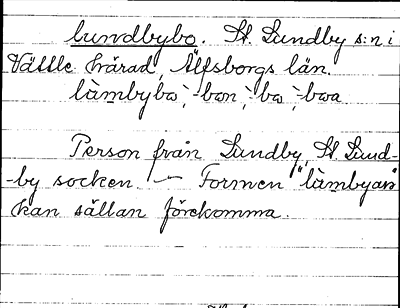 lundbybo. St. Lundby s:n i
Vättle härad, Älfsborgs län.
làmbybω; -bωn; -bω; -bωa
Person från Lundby, St Lund-
-by socken. — Formen "làmbyan"
kan sällan förekomma.